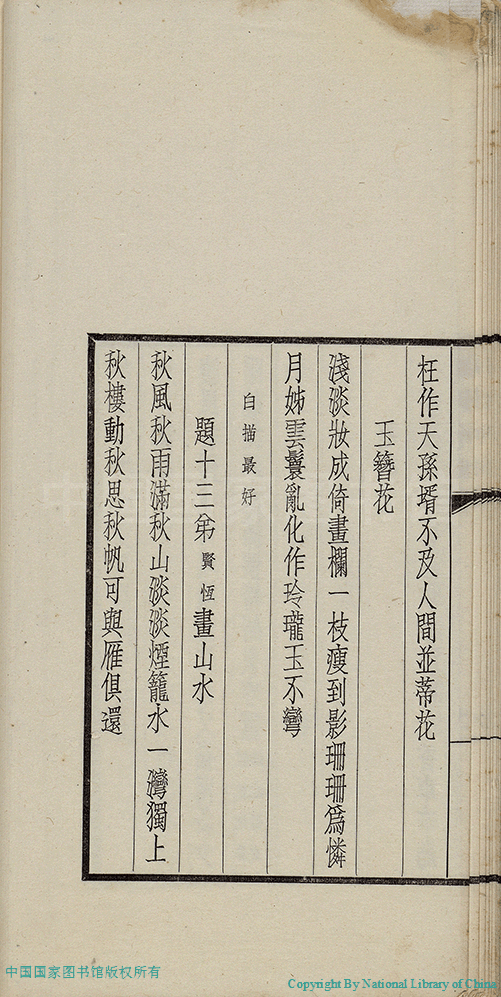 枉作天孫壻不及人間並蒂花
玉簪花
淺淡妝成倚畫欄一枝瘦到影珊珊爲憐
月姊雲鬟亂化作玲瓏玉不彎
白描最好
題十三弟賢恆畫山水
秋風秋雨滿秋山淡淡煙籠水一灣獨上
秋樓動秋思秋帆可與雁俱還
中国国家图书馆版权所有
Copyright By National Library of China